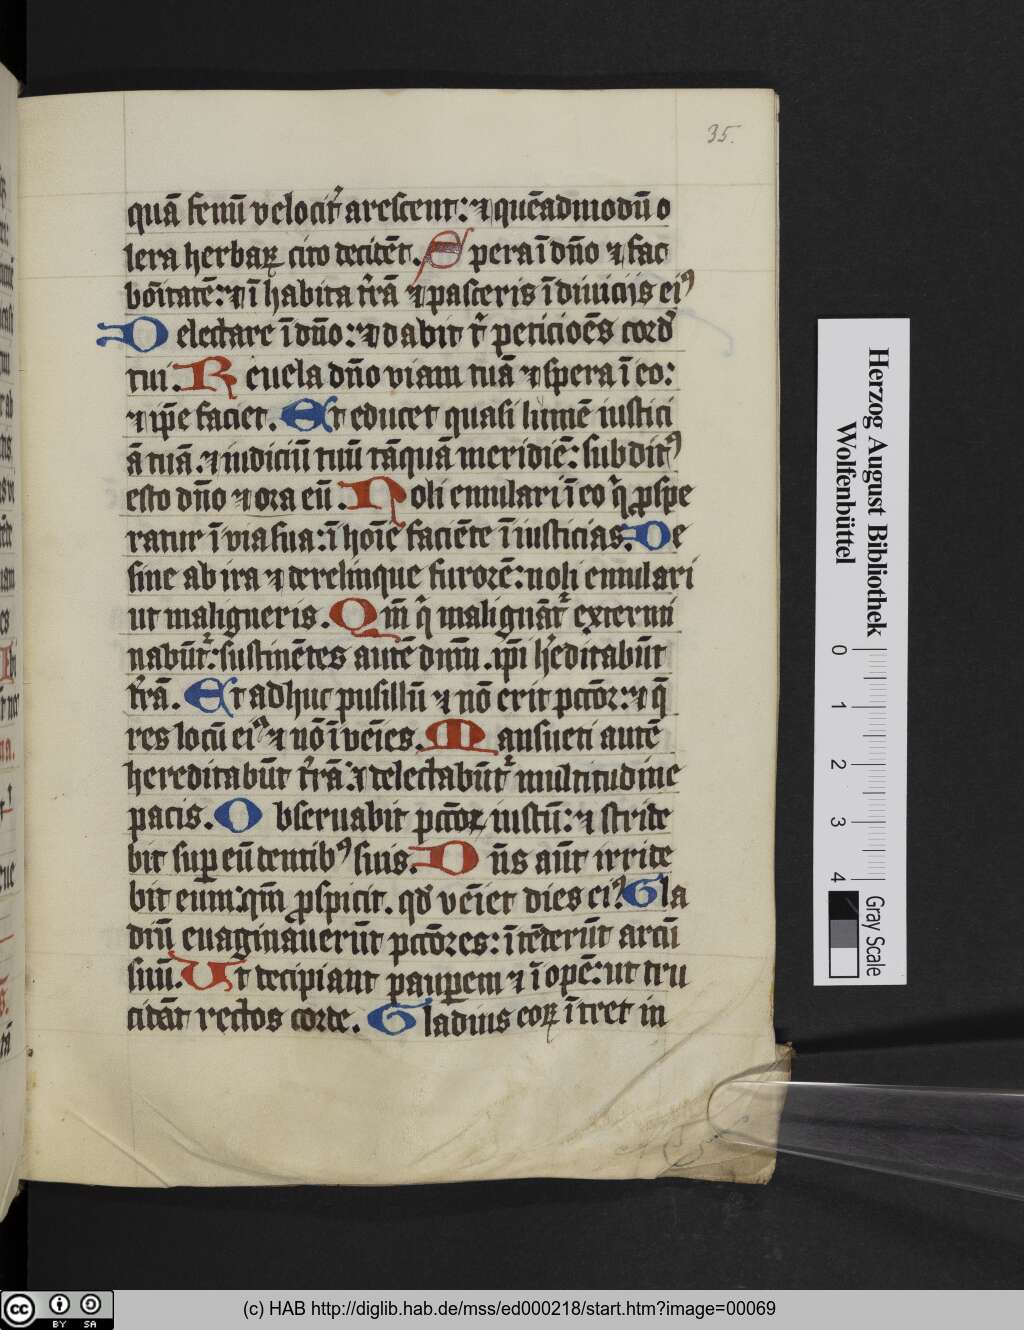 35.
quā fenū velocit᷑ arescent: ⁊ quēadmodū o
lera herbaꝝ cito decidēt. Spera ī dn̄o ⁊ fac
bōitatē: ⁊ ī habita t᷑rā ⁊ pasceris ī diuiciis eiꝰ
Delectare ī dn̄o: ⁊ dabit t᷑ peticiōes cord᷑
tui. Reuela dn̄o viam tuā ⁊ spera ī eo:
⁊ ip̄e faciet. Et educet quasi lumē iustici
ā tuā. ⁊ iudiciū tuū tāquā meridiē: subditꝰ
esto dn̄o ⁊ ora eū. Noli emulari ī eo q̇ ꝓspe
ratur ī via sua: ī hoīe faciēte ī iusticias. De
sine ab ira ⁊ derelinque furorē: noli emulari
ut maligneris. Qm̄ q̇ malignāt᷑ extermi
nabūt᷑: sustinētes autē dnm̄. ip̄i h᷑editabūt
t᷑rā. Et adhuc pusillū ⁊ nō erit pctōr: ⁊ q̄
res locū eiꝰ ⁊ nō īvēies. Mansueti autē
hereditabūt t᷑rā: ⁊ delectabūt᷑ multitudine
pacis. Obseruabit pctōr iustū: ⁊ stride
bit suꝑ eū dentibꝰ suis. Dn̄s aūt irride
bit eum: qm̄ ꝓspicit. qd̕ vēiet dies eiꝰ. Gla
diū euaginauerūt pctōres: ītēderūt arcū
suū. Ut decipiant pauꝑem ⁊ īopē: ut tru
cidāt rectos corde. Gladius eoꝝ ītret in
Herzog August Bibliothek
Wolfenbüttel
0 1 2 3 4
Gray Scale
cc BY SA
(c) HAB http://diglib.hab.de/mss/ed000218/start.htm?image=00069